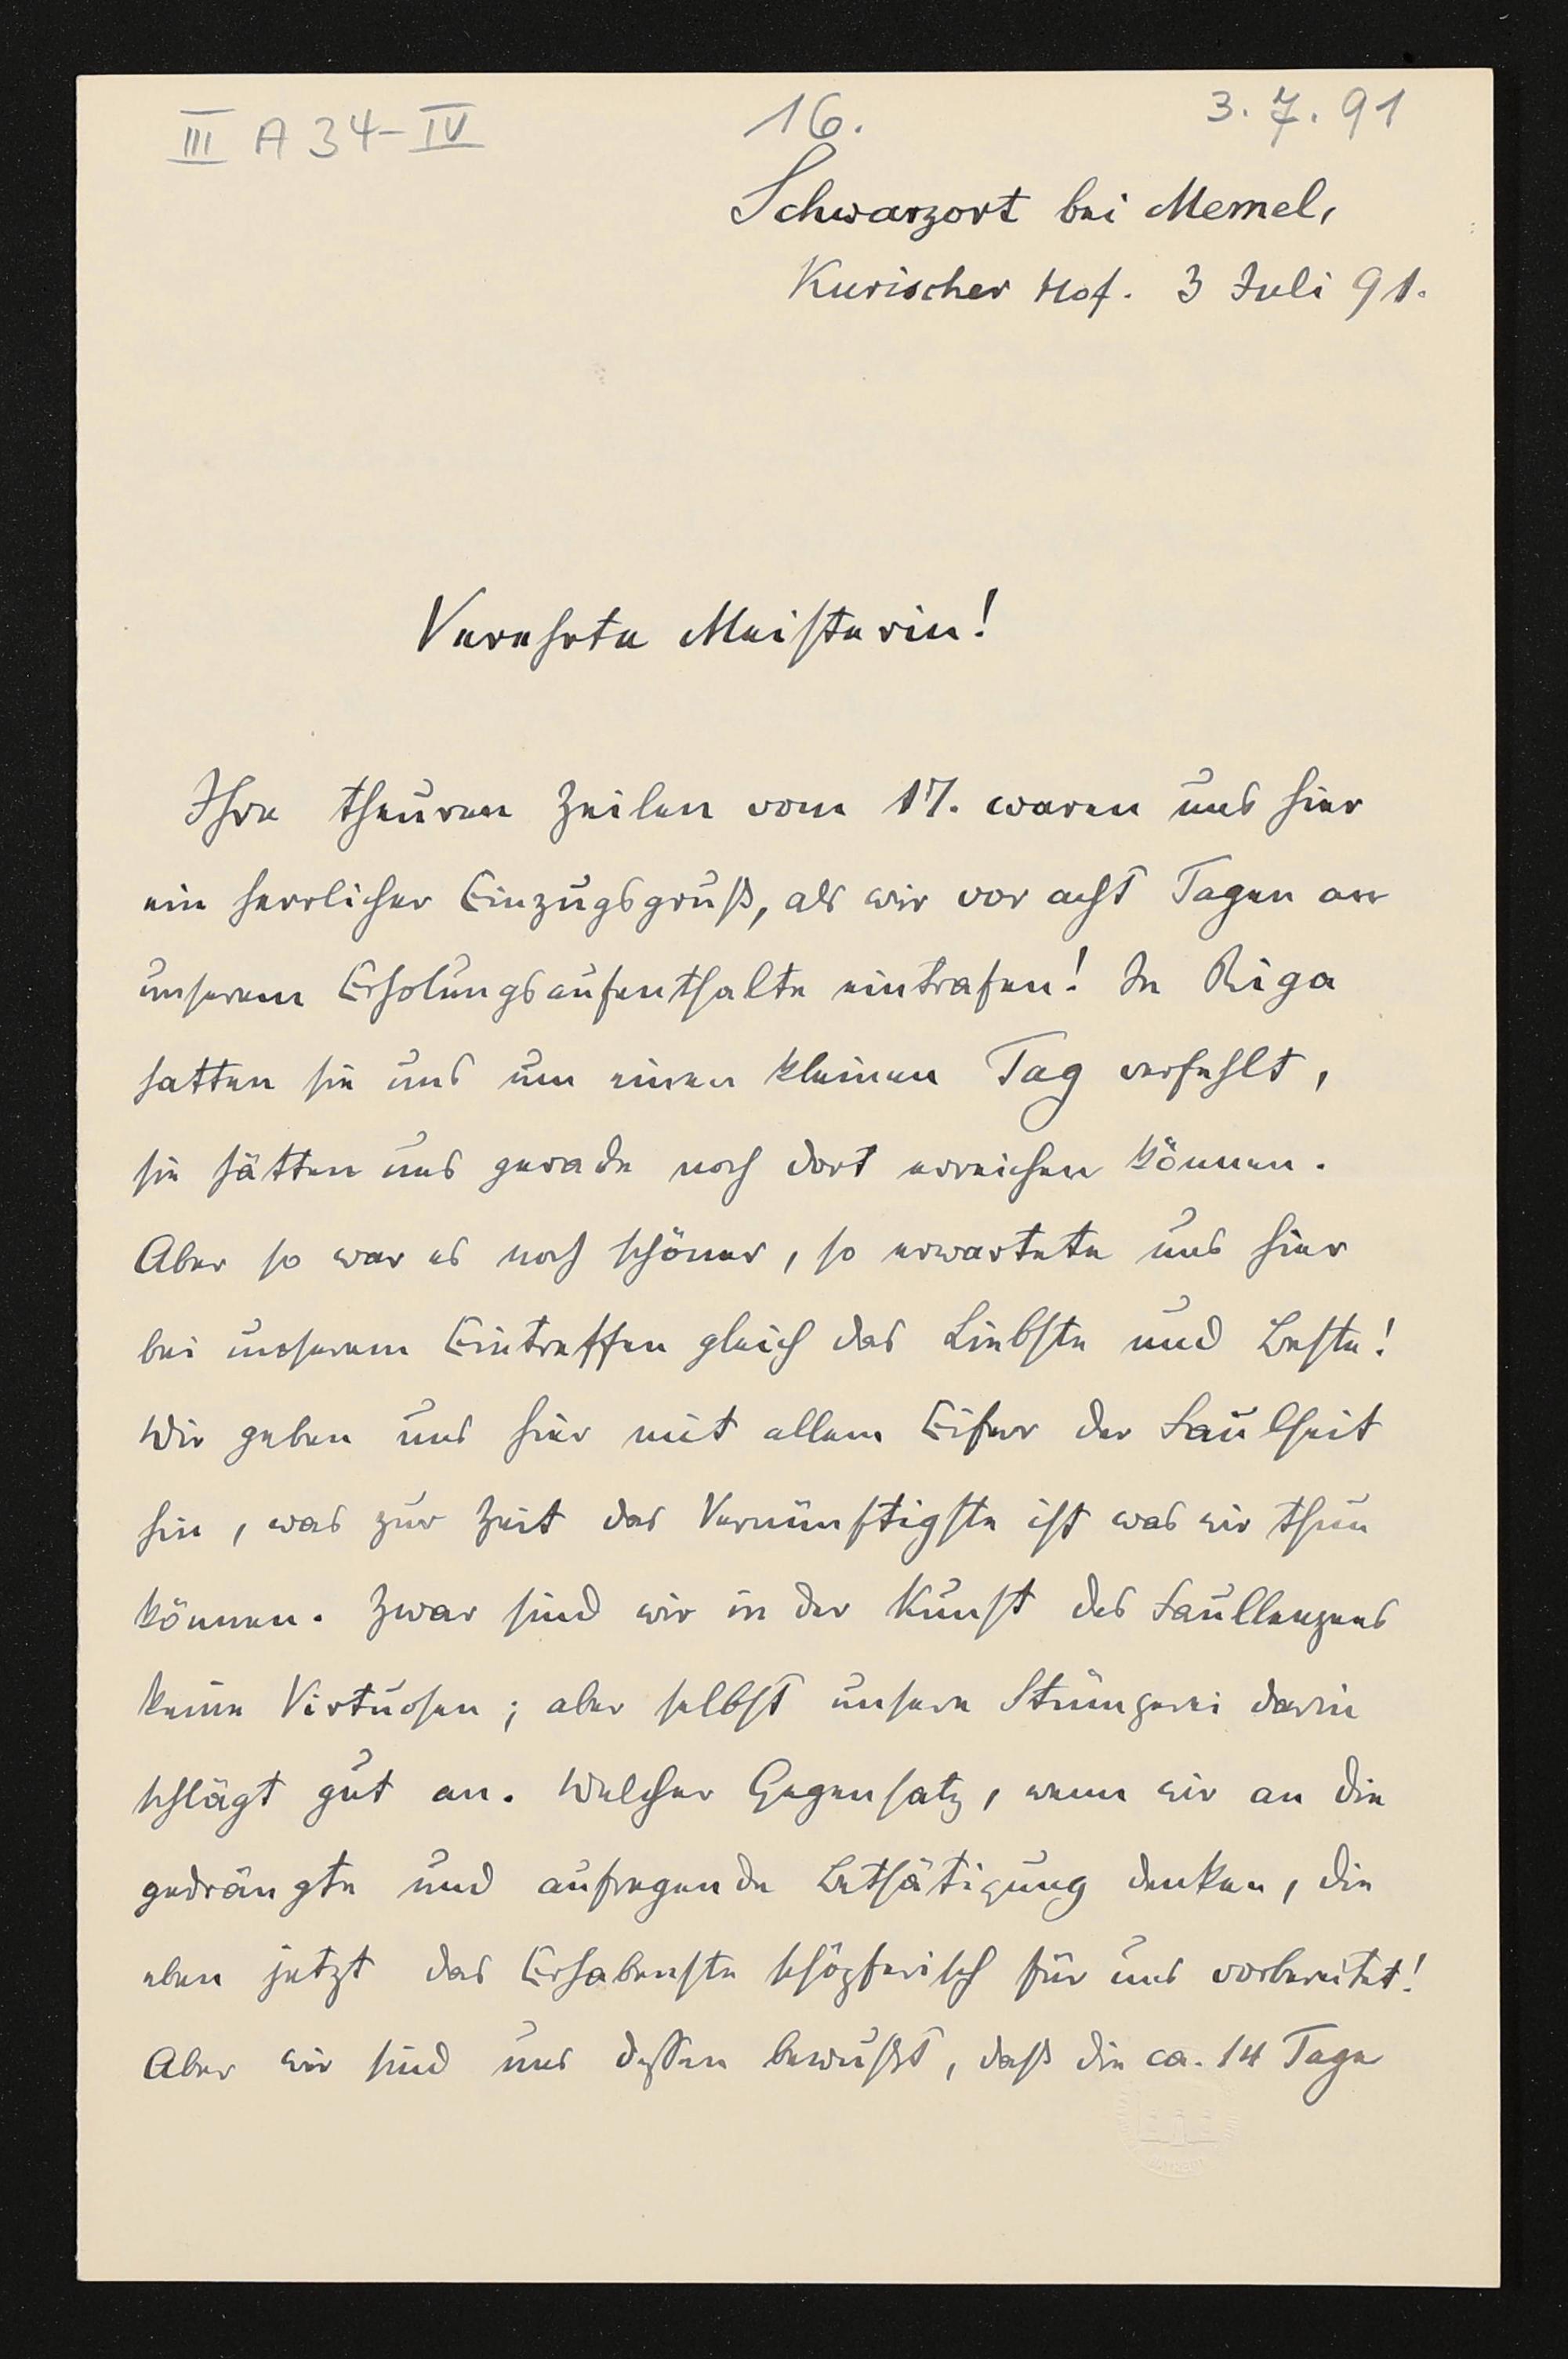 III A 34-IV
16.
3. 7. 91
Schwarzort bei Memel,
Kurischer Hof. 3 Juli 91.
Verehrte Meisterin!
Ihre theuren Zeilen vom 17. waren uns hier
ein herrlicher Einzugsgruß, als wir vor acht Tagen an
unserem Erholungsaufenthalte eintrafen! In Riga
hatten sie uns um einen kleinen Tag verfehlt,
sie hätten uns gerade noch dort erreichen können.
Aber so war es noch schöner, so erwartete uns hier
bei unserem Eintreffen gleich das Liebste und Beste!
Wir geben uns hier mit allem Eifer der Faulheit
hin, was zur Zeit das Vernünftigste ist was wir thun
können. Zwar sind wir in der Kunst des Faullenzens
keine Virtuosen; aber selbst unsere Stümperei darin
schlägt gut an. Welcher Gegensatz, wenn wir an die
gedrängte und aufregende Bethätigung denken, die
eben jetzt das Erhabenste schöpferisch für uns vorbereitet!
Aber wir sind uns dessen bewußt, daß die ca. 14 Tage